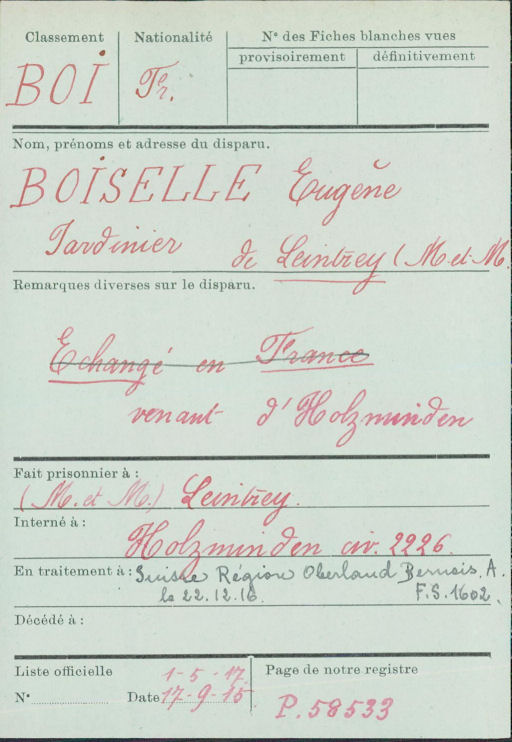 Classement Nationalité Nº des Fiches blanches vues
provisoirement définitivement
BOI Fr.
Nom, prénoms et adresse du disparu.
BOISELLE Eugène
Jardinier de Leintrey (M. et M.
Remarques diverses sur le disparu.
Echangé en France
venant d'Holzminden
Fait prisonnier à :
(M. et M.) Leintrey.
Interné à :
Holzminden civ. 2226.
En traitement à : Suisse Région Oberland Bernois. A.
le 22.12.16. F.S. 1602.
Décédé à :
Liste officielle 1-5-17. Page de notre registre
Nº Date 17-9-15 P. 58533